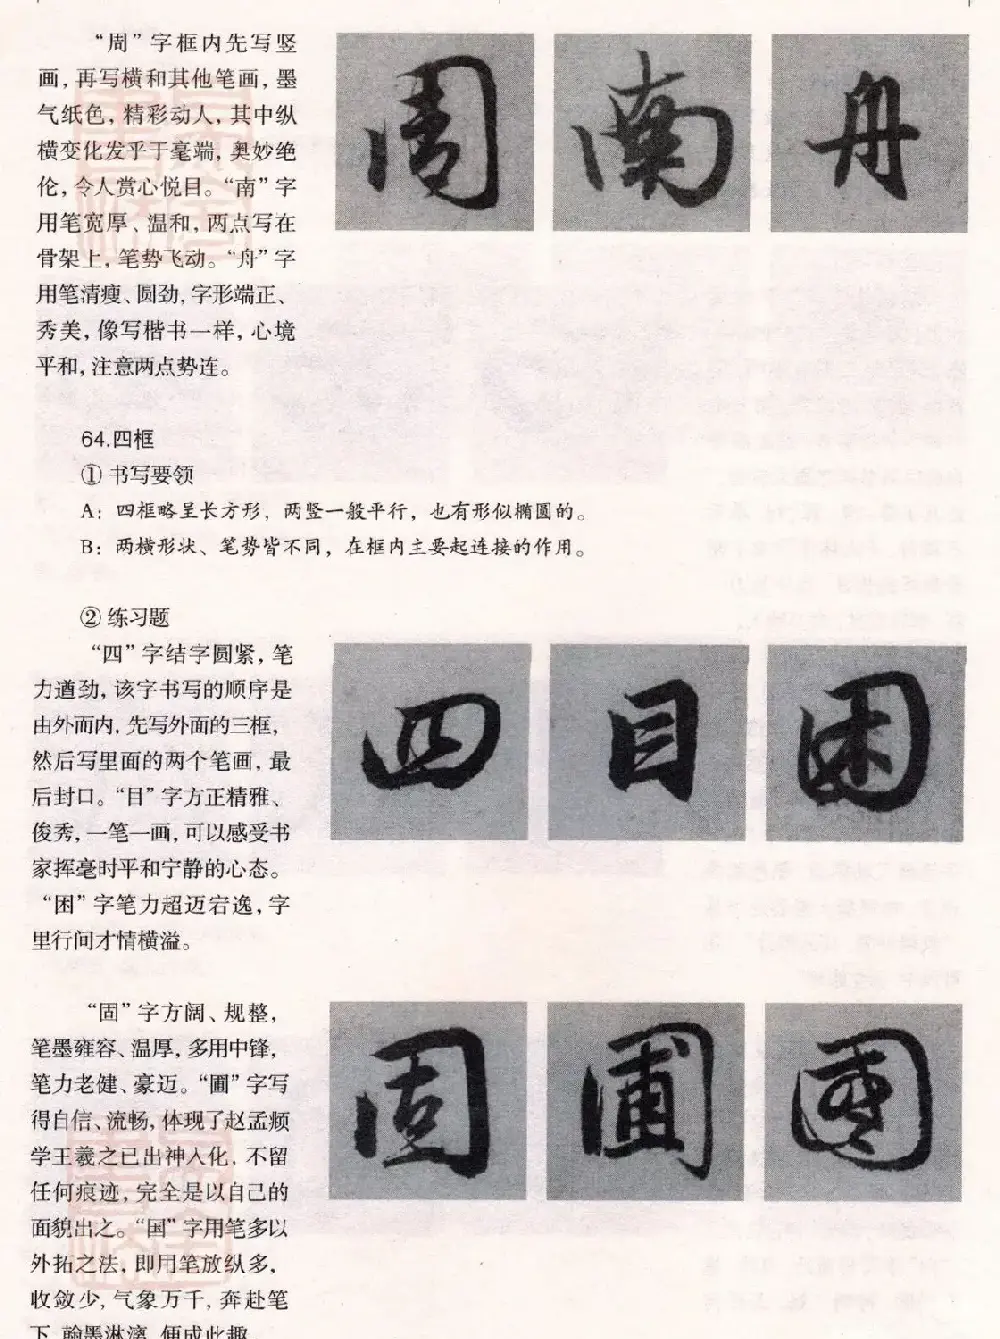 “周”字框内先写竖
画,再写横和其他笔画,墨
气纸色,精彩动人,其中纵
横变化发乎于毫端,奥妙绝
伦,令人赏心悦目。“南”字
用笔宽厚、温和,两点写在
骨架上,笔势飞动。“舟”字
用笔清瘦、圆劲,字形端正、
秀美,像写楷书一样,心境
平和,注意两点势连。
周 南 舟
64.四框
① 书写要领
A: 四框略呈长方形,两竖一般平行,也有形似椭圆的。
B: 两横形状、笔势皆不同,在框内主要起连接的作用。
② 练习题
“四”字结字圆紧,笔
力遒劲,该字书写的顺序是
由外而内,先写外面的三框,
然后写里面的两个笔画,最
后封口。“目”字方正精雅、
俊秀,一笔一画,可以感受书
家挥毫时平和宁静的心态。
“困”字笔力超迈宕逸,字
里行间才情横溢。
四 目 困
“固”字方阔、规整,
笔墨雍容、温厚,多用中锋,
笔力老健、豪迈。“圃”字写
得自信、流畅,体现了赵孟頫
学王羲之已出神入化,不留
任何痕迹,完全是以自己的
面貌出之。“国”字用笔多以
外拓之法,即用笔放纵多,
收敛少,气象万千,奔赴笔
下,翰墨淋漓,便成此趣。
固 圃 國